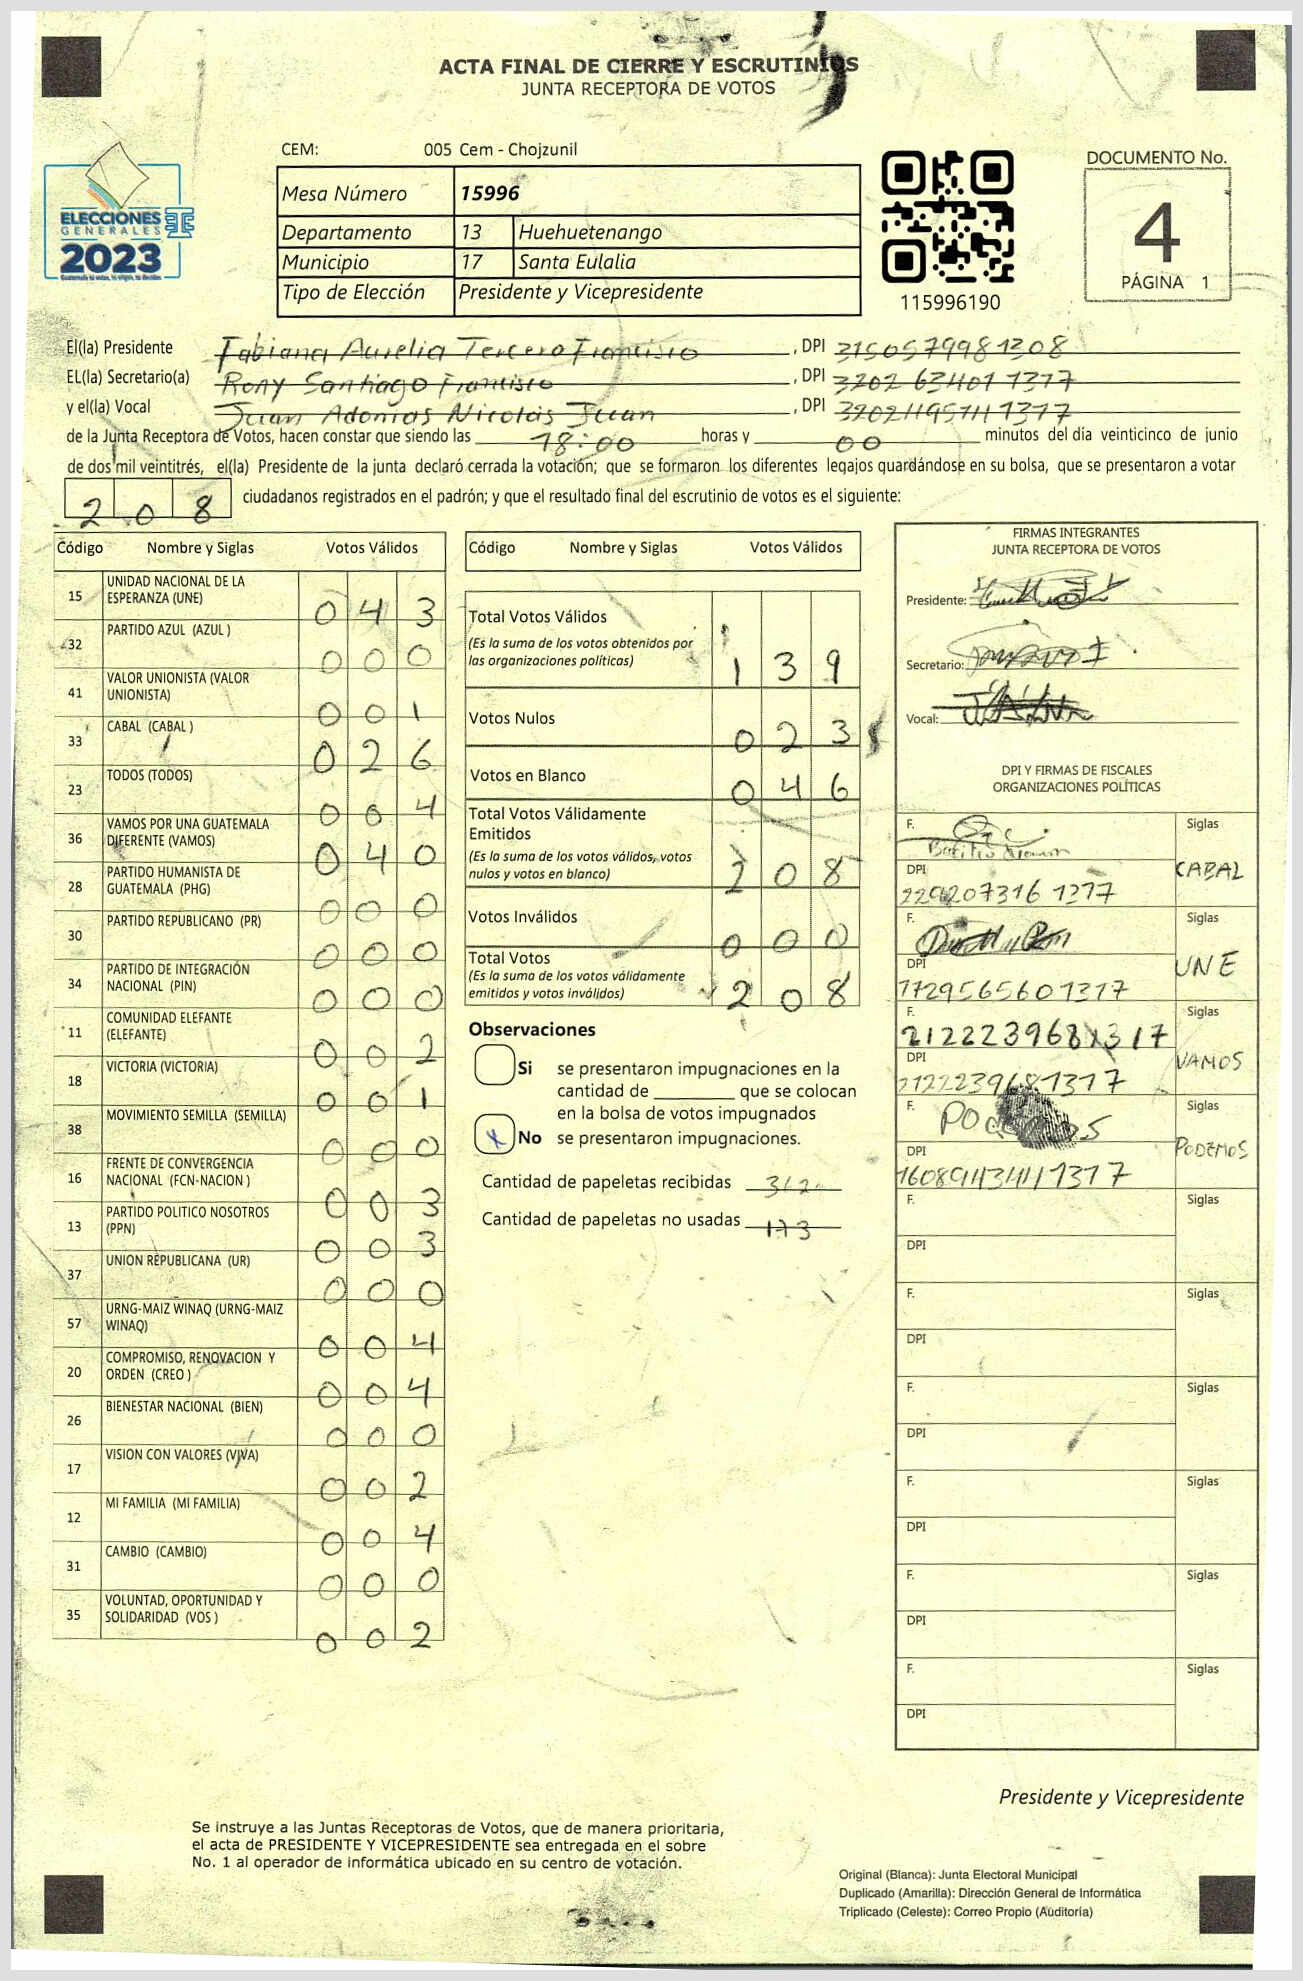 ACTA FINAL DE CIERRE Y ESCRUTINIOS
JUNTA RECEPTORA DE VOTOS
CEM: 005 Cem - Chojzunil
DOCUMENTO No.
4
PÁGINA 1
ELECCIONES
GENERALES
2023
Mesa Número 15996
Departamento 13 Huehuetenango
Municipio 17 Santa Eulalia
Tipo de Elección Presidente y Vicepresidente
115996190
El(la) Presidente Fabiana Aurelia Tercero Francisco , DPI 3150579981308
EL(la) Secretario(a) Rony Santiago Francisco , DPI 3202 63401 1317
y el(la) Vocal Juan Adonias Nicolás Juan , DPI
de la Junta Receptora de Votos, hacen constar que siendo las 18:00 horas y 00 minutos del día veinticinco de junio
de dos mil veintitrés, el(la) Presidente de la junta declaró cerrada la votación; que se formaron los diferentes legajos guardándose en su bolsa, que se presentaron a votar
208 ciudadanos registrados en el padrón; y que el resultado final del escrutinio de votos es el siguiente:
Código Nombre y Siglas Votos Válidos
15 UNIDAD NACIONAL DE LA ESPERANZA (UNE) 043
32 PARTIDO AZUL (AZUL ) 000
41 VALOR UNIONISTA (VALOR UNIONISTA) 001
33 CABAL (CABAL ) 026
23 TODOS (TODOS) 004
36 VAMOS POR UNA GUATEMALA DIFERENTE (VAMOS) 040
28 PARTIDO HUMANISTA DE GUATEMALA (PHG) 000
30 PARTIDO REPUBLICANO (PR) 000
34 PARTIDO DE INTEGRACIÓN NACIONAL (PIN) 000
11 COMUNIDAD ELEFANTE (ELEFANTE) 002
18 VICTORIA (VICTORIA) 001
38 MOVIMIENTO SEMILLA (SEMILLA) 000
16 FRENTE DE CONVERGENCIA NACIONAL (FCN-NACION ) 003
13 PARTIDO POLITICO NOSOTROS (PPN) 003
37 UNION REPUBLICANA (UR) 000
57 URNG-MAIZ WINAQ (URNG-MAIZ WINAQ) 004
20 COMPROMISO, RENOVACION Y ORDEN (CREO ) 004
26 BIENESTAR NACIONAL (BIEN) 000
17 VISION CON VALORES (VIVA) 002
12 MI FAMILIA (MI FAMILIA) 004
31 CAMBIO (CAMBIO) 000
35 VOLUNTAD, OPORTUNIDAD Y SOLIDARIDAD (VOS ) 002
Código Nombre y Siglas Votos Válidos
Total Votos Válidos 139
(Es la suma de los votos obtenidos por
las organizaciones políticas)
Votos Nulos 023
Votos en Blanco 046
Total Votos Válidamente
Emitidos 208
(Es la suma de los votos válidos, votos
nulos y votos en blanco)
Votos Inválidos 000
Total Votos 208
(Es la suma de los votos válidamente
emitidos y votos inválidos)
Observaciones
Si se presentaron impugnaciones en la
cantidad de ________ que se colocan
en la bolsa de votos impugnados
X No se presentaron impugnaciones.
Cantidad de papeletas recibidas
Cantidad de papeletas no usadas 173
FIRMAS INTEGRANTES
JUNTA RECEPTORA DE VOTOS
Presidente:
Secretario:
Vocal:
DPI Y FIRMAS DE FISCALES
ORGANIZACIONES POLÍTICAS
F. Siglas
DPI CABAL
F. Siglas
DPI UNE
1729565601317
F. Siglas
DPI VAMOS
2122239681317
F. Siglas
DPI PODEMOS
F. Siglas
DPI
F. Siglas
DPI
F. Siglas
DPI
F. Siglas
DPI
F. Siglas
DPI
F. Siglas
DPI
Presidente y Vicepresidente
Se instruye a las Juntas Receptoras de Votos, que de manera prioritaria,
el acta de PRESIDENTE Y VICEPRESIDENTE sea entregada en el sobre
No. 1 al operador de informática ubicado en su centro de votación.
Original (Blanca): Junta Electoral Municipal
Duplicado (Amarilla): Dirección General de Informática
Triplicado (Celeste): Correo Propio (Auditoría)